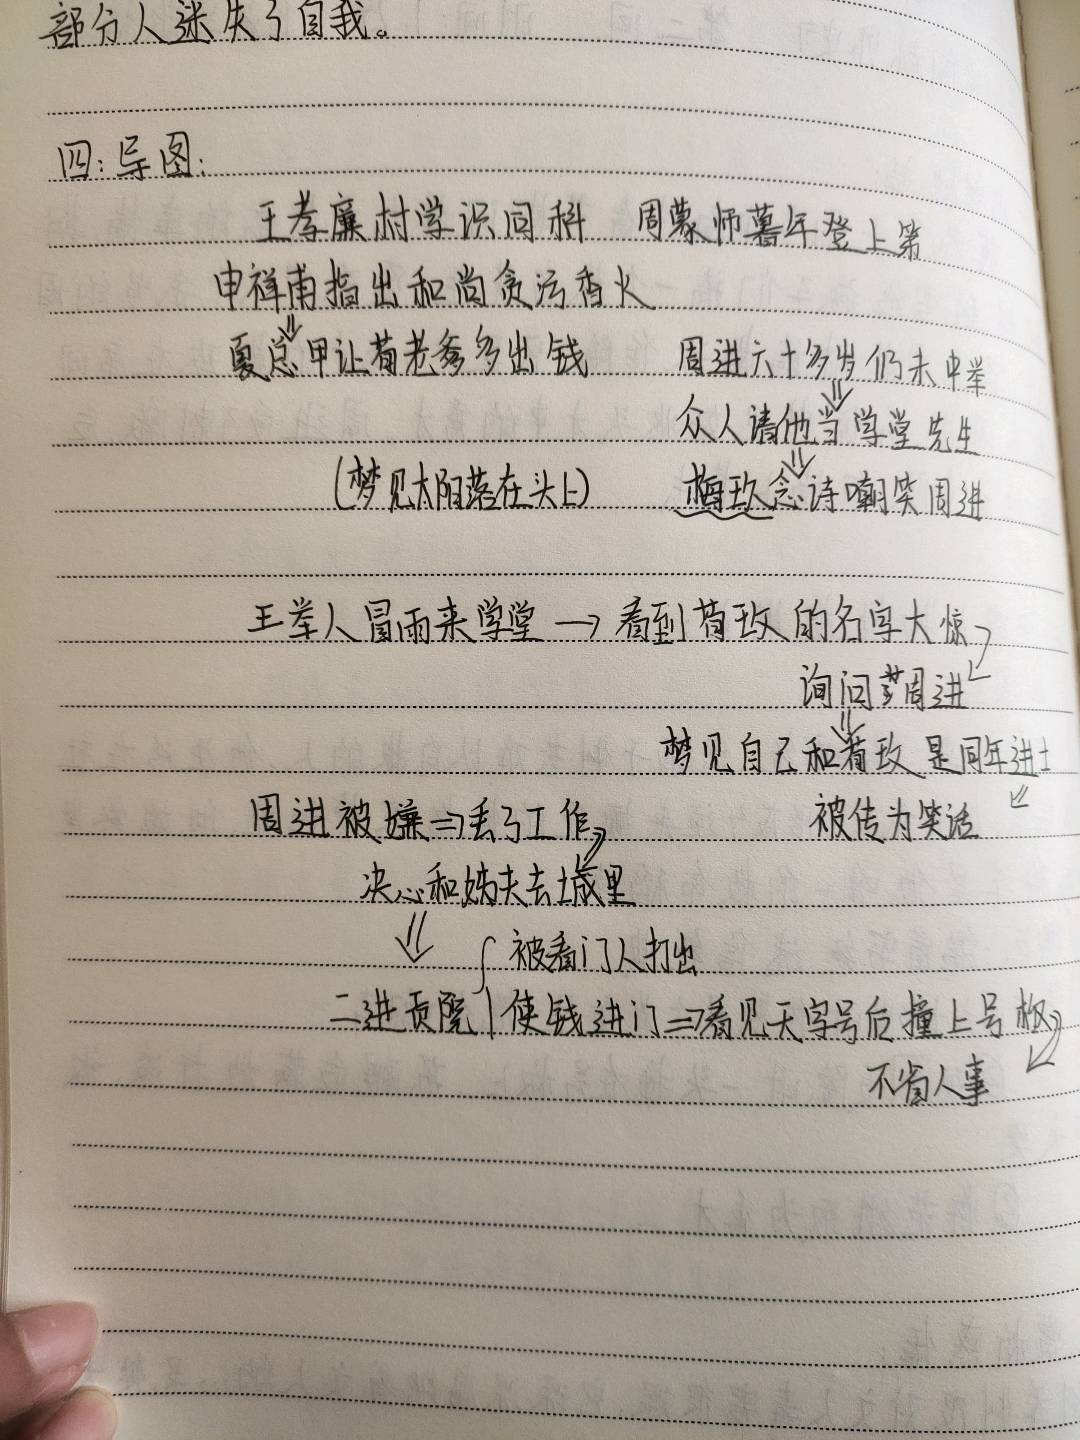 部分人迷失了自我。
四:导图:
王孝廉村学识同科 周蒙师暮年登上第
申祥甫指出和尚贪污香火
⇓
夏总甲让荀老爹多出钱 周进六十多岁仍未中举
⇓
众人请他当学堂先生
⇓
(梦见太阳落在头上) 梅玖念诗嘲笑周进
王举人冒雨来学堂→看到荀玫的名字大惊
询问周进
⇓
梦见自己和荀玫是同年进士
周进被嫌⇒丢了工作 被传为笑话
决心和姊夫去城里
⇓ 被看门人打出
二进贡院 使钱进门⇒看见天字号后撞上号板
不省人事